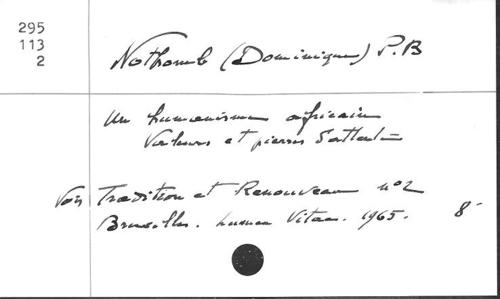 295
113
2
Nothomb (Dominique) P.B
Un humanisme africain
Valeurs et pierres d'attente
Voir Tradition et Renouveau n°2
Bruxelles. Lumen Vitae. 1965. 8°